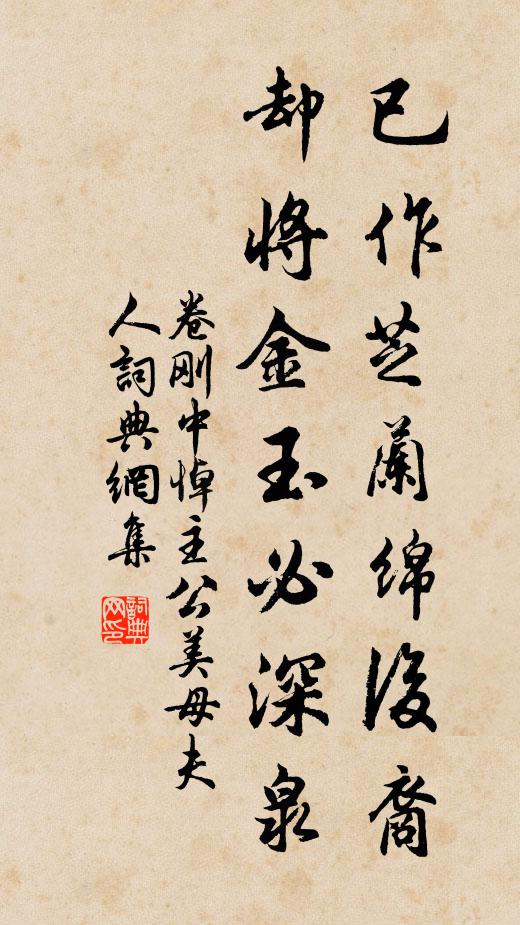 已作芝蘭綿後裔
却將金玉必深泉
卷剛中悼主公美母夫
人詞典網集
詞典
网印